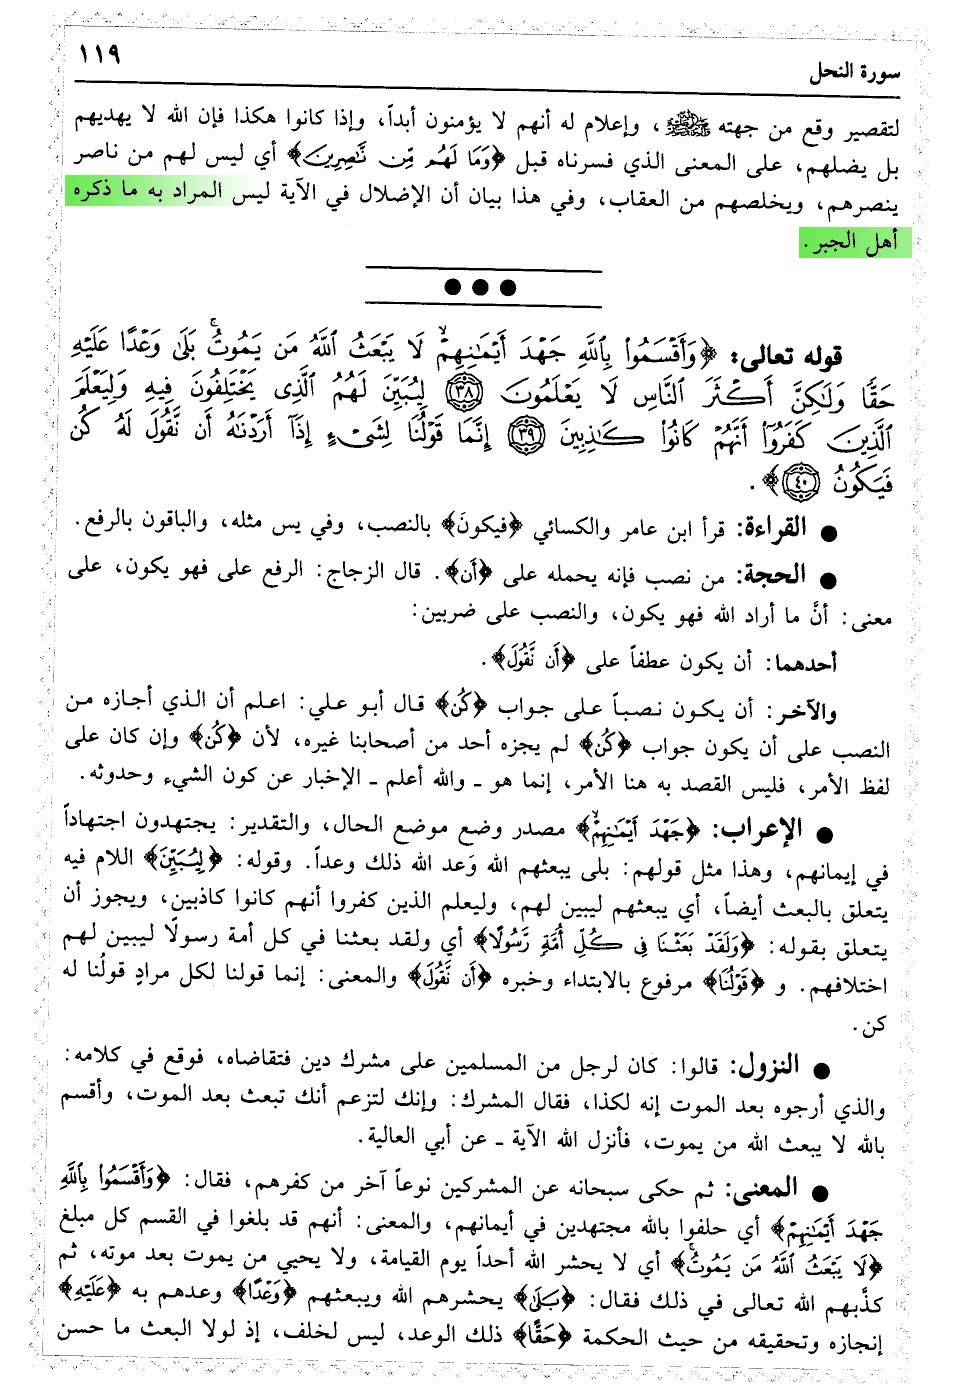 سورة النحل
١١٩
لتقصير وقع من جهته ﷺ، وإعلام له أنهم لا يؤمنون أبداً، وإذا كانوا هكذا فإن الله لا يهديهم
بل يضلهم، على المعنى الذي فسرناه قبل ﴿وَمَا لَهُم مِّن نَّاصِرِينَ﴾ أي ليس لهم من ناصر
ينصرهم، ويخلصهم من العقاب، وفي هذا بيان أن الإضلال في الآية ليس المراد به ما ذكره
أهل الجبر.
قوله تعالى: ﴿وَأَقْسَمُوا۟ بِٱللَّهِ جَهْدَ أَيْمَٰنِهِمْ ۙ لَا يَبْعَثُ ٱللَّهُ مَن يَمُوتُ ۚ بَلَىٰ وَعْدًا عَلَيْهِ
حَقًّا وَلَٰكِنَّ أَكْثَرَ ٱلنَّاسِ لَا يَعْلَمُونَ ٣٨ لِيُبَيِّنَ لَهُمُ ٱلَّذِى يَخْتَلِفُونَ فِيهِ وَلِيَعْلَمَ
ٱلَّذِينَ كَفَرُوٓا۟ أَنَّهُمْ كَانُوا۟ كَٰذِبِينَ ٣٩ إِنَّمَا قَوْلُنَا لِشَىْءٍ إِذَآ أَرَدْنَٰهُ أَن نَّقُولَ لَهُۥ كُن
فَيَكُونُ ٤٠﴾.
● القراءة: قرأ ابن عامر والكسائي ﴿فيكونَ﴾ بالنصب، وفي يس مثله، والباقون بالرفع.
● الحجة: من نصب فإنه يحمله على ﴿أَن﴾. قال الزجاج: الرفع على فهو يكون، على
معنى: أنَّ ما أراد الله فهو يكون، والنصب على ضربين:
أحدهما: أن يكون عطفاً على ﴿أَن نَّقُولَ﴾.
والآخر: أن يكون نصباً على جواب ﴿كُن﴾ قال أبو علي: اعلم أن الذي أجازه من
النصب على أن يكون جواب ﴿كُن﴾ لم يجزه أحد من أصحابنا غيره، لأن ﴿كُن﴾ وإن كان على
لفظ الأمر، فليس القصد به هنا الأمر، إنما هو ـ والله أعلم ـ الإخبار عن كون الشيء وحدوثه.
● الإعراب: ﴿جَهْدَ أَيْمَٰنِهِمْ ۙ﴾ مصدر وضع موضع الحال، والتقدير: يجتهدون اجتهاداً
في إيمانهم، وهذا مثل قولهم: بلى يبعثهم الله وَعد الله ذلك وعداً. وقوله: ﴿لِيُبَيِّنَ﴾ اللام فيه
يتعلق بالبعث أيضاً، أي يبعثهم ليبين لهم، وليعلم الذين كفروا أنهم كانوا كاذبين، ويجوز أن
يتعلق بقوله: ﴿وَلَقَدْ بَعَثْنَا فِى كُلِّ أُمَّةٍ رَّسُولًا﴾ أي ولقد بعثنا في كل أمة رسولًا ليبين لهم
اختلافهم. و ﴿قَوْلُنَا﴾ مرفوع بالابتداء وخبره ﴿أَن نَّقُولَ﴾ والمعنى: إنما قولنا لكل مرادٍ قولُنا له
كن.
● النزول: قالوا: كان لرجل من المسلمين على مشرك دين فتقاضاه، فوقع في كلامه:
والذي أرجوه بعد الموت إنه لكذا، فقال المشرك: وإنك لتزعم أنك تبعث بعد الموت، وأقسم
بالله لا يبعث الله من يموت، فأنزل الله الآية ـ عن أبي العالية.
● المعنى: ثم حكى سبحانه عن المشركين نوعاً آخر من كفرهم، فقال: ﴿وَأَقْسَمُوا۟ بِٱللَّهِ
جَهْدَ أَيْمَٰنِهِمْ﴾ أي حلفوا بالله مجتهدين في أيمانهم، والمعنى: أنهم قد بلغوا في القسم كل مبلغ
﴿لَا يَبْعَثُ ٱللَّهُ مَن يَمُوتُ ۚ﴾ أي لا يحشر الله أحداً يوم القيامة، ولا يحيي من يموت بعد موته، ثم
كذَّبهم الله تعالى في ذلك فقال: ﴿بَلَىٰ﴾ يحشرهم الله ويبعثهم ﴿وَعْدًا﴾ وعدهم به ﴿عَلَيْهِ﴾
إنجازه وتحقيقه من حيث الحكمة ﴿حَقًّا﴾ ذلك الوعد، ليس لخلف، إذ لولا البعث ما حسن